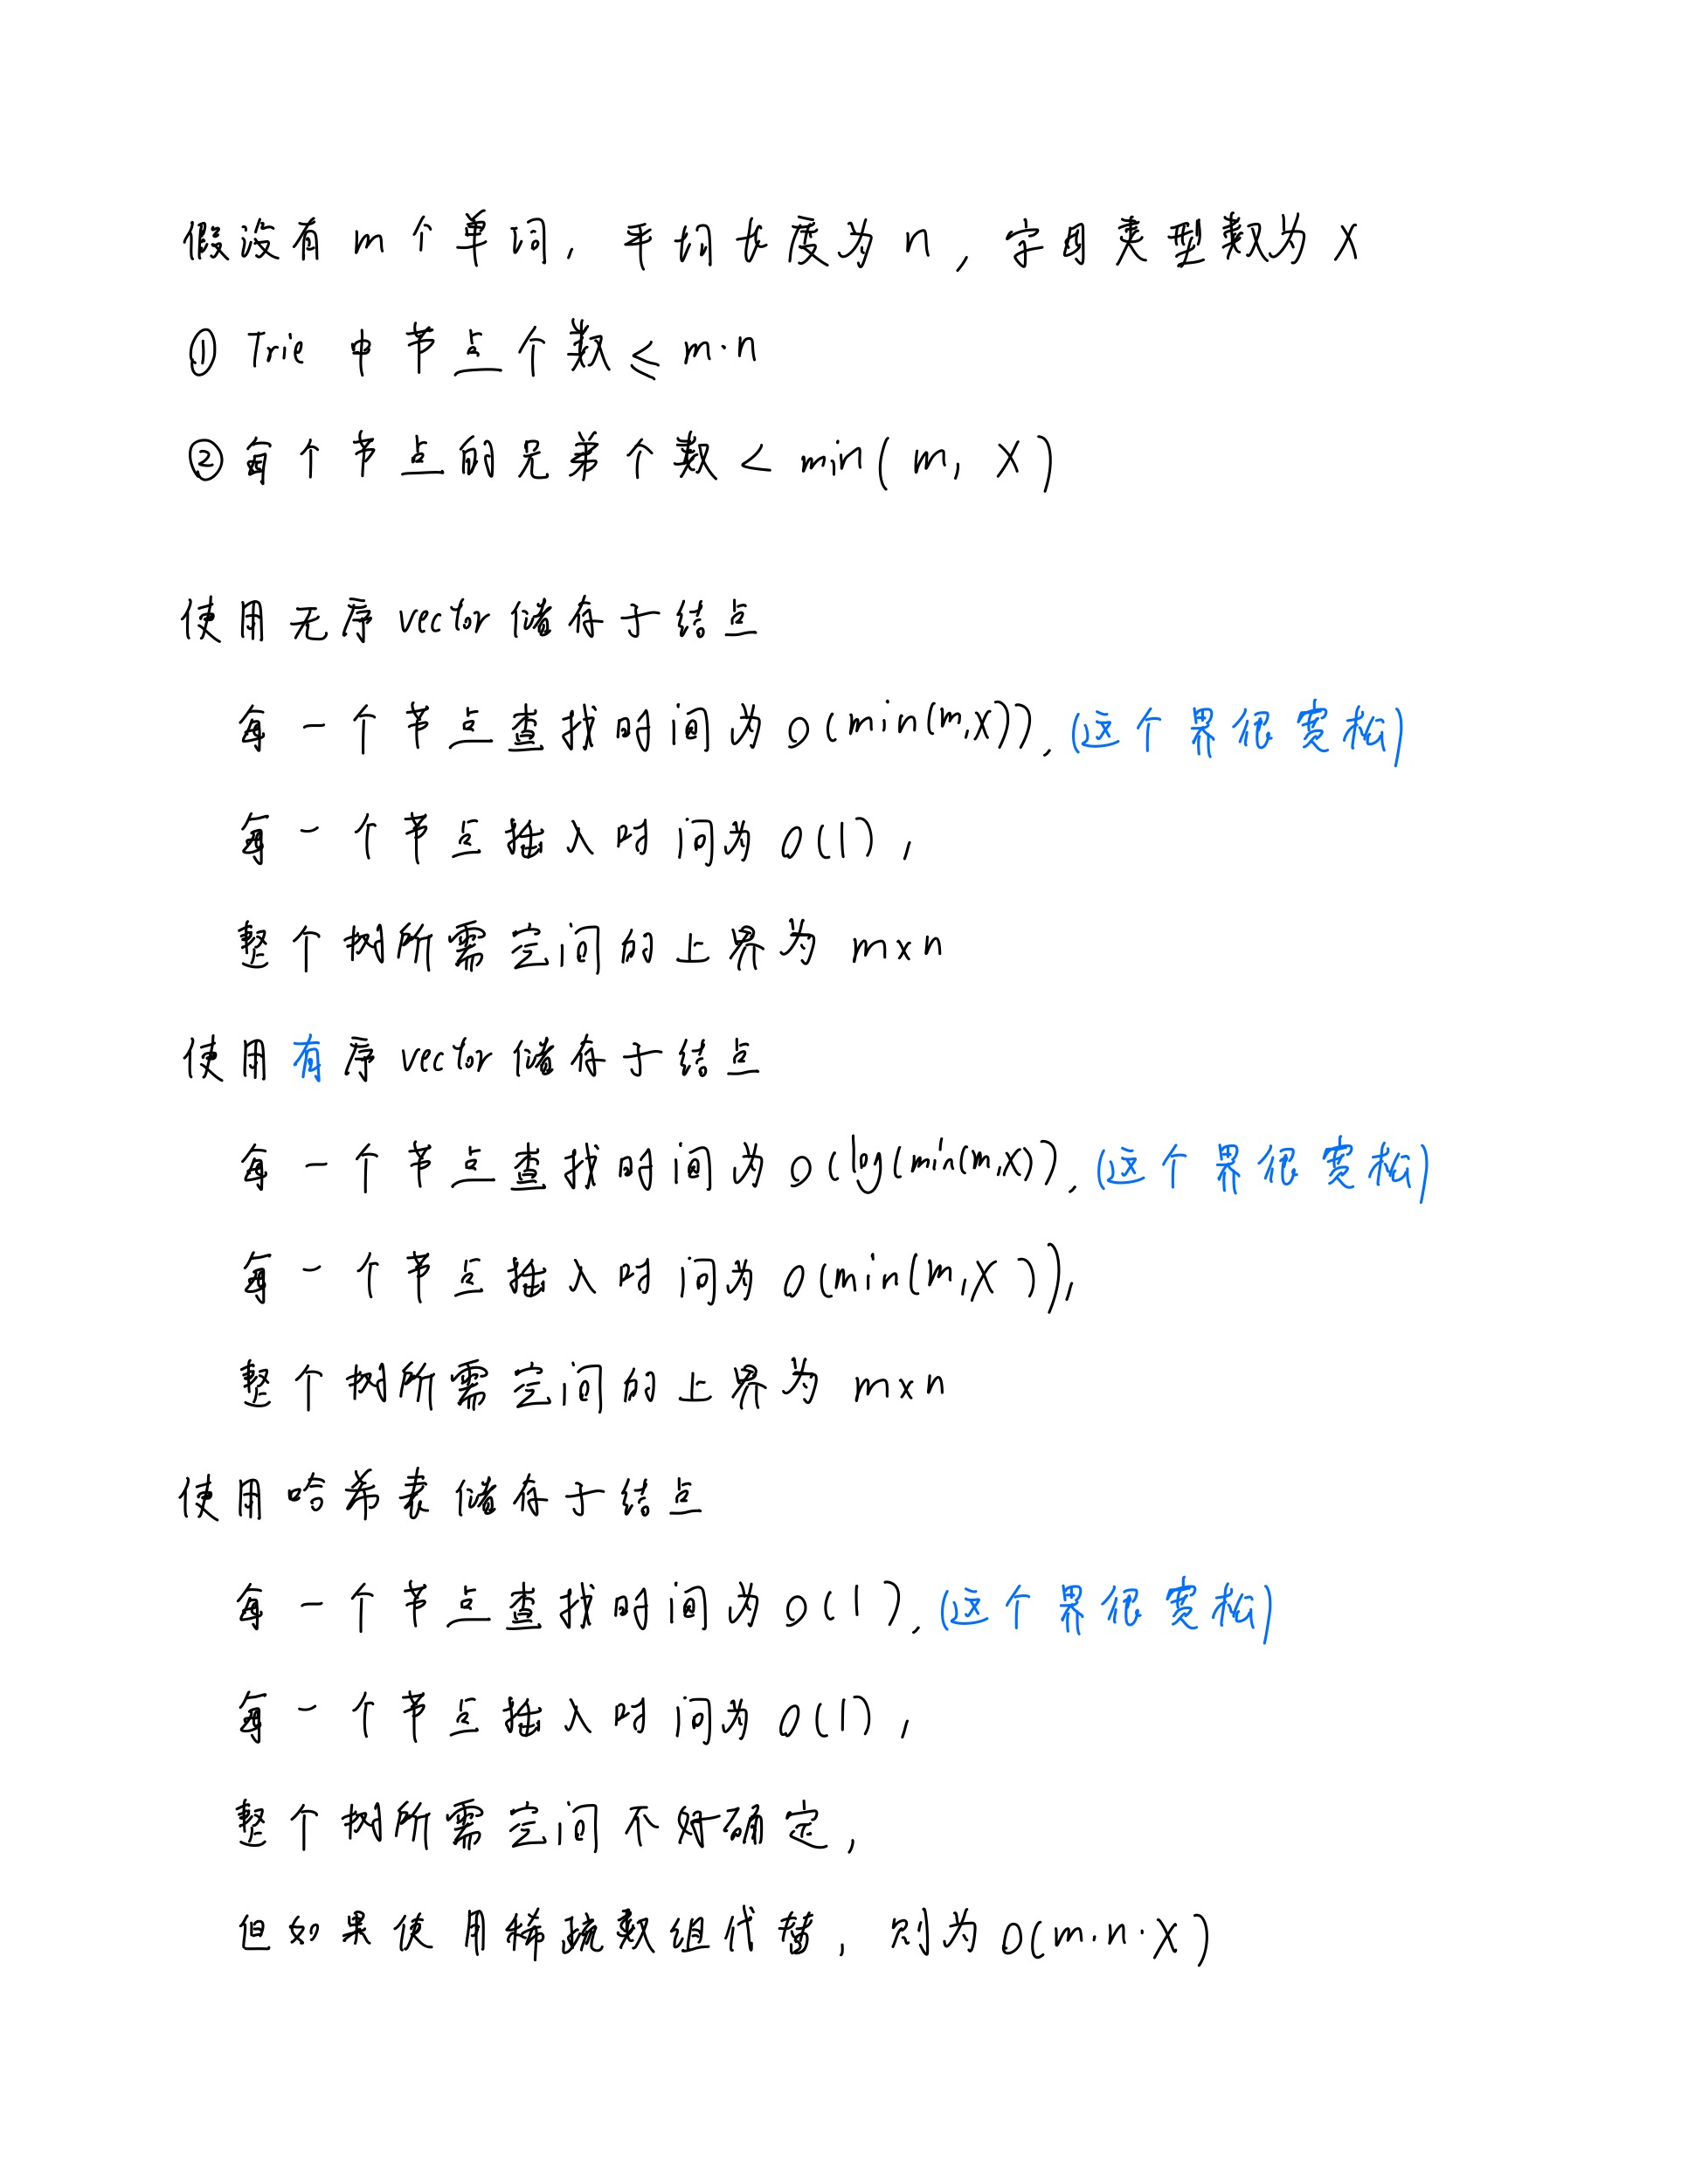 假设有 m 个单词，平均长度为 n，字母类型数为 X
① Trie 中节点个数 ≤ m·n
② 每个节点的兄弟个数 < min(m, X)
使用无序 vector 储存子结点
每一个节点查找时间为 O(min(m,X)), (这个界很宽松)
每一个节点插入时间为 O(1),
整个树所需空间的上界为 m×n
使用有序 vector 储存子结点
每一个节点查找时间为 O(log(min(m,X)), (这个界很宽松)
每一个节点插入时间为 O(min(m,X)),
整个树所需空间的上界为 m×n
使用哈希表储存子结点
每一个节点查找时间为 O(1), (这个界很宽松)
每一个节点插入时间为 O(1),
整个树所需空间不好确定,
但如果使用稀疏数组代替, 则为 O(m·n·X)